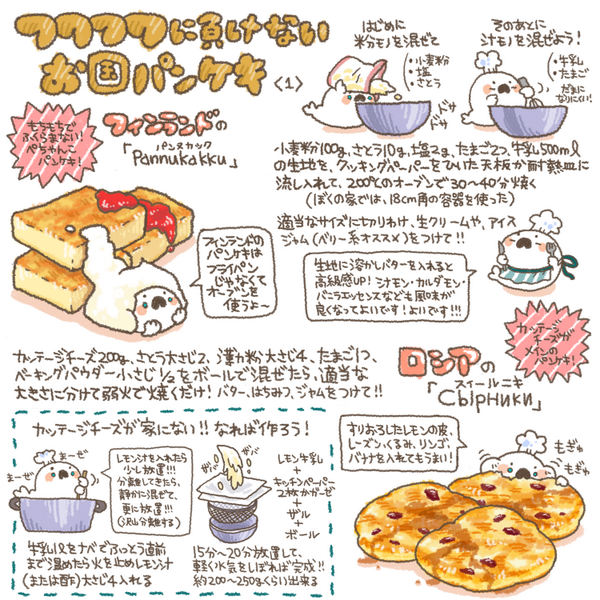 フワフワに負けない
お国パンケーキ
〈1〉
はじめに
粉モノを混ぜて
・小麦粉
・塩
・さとう
ドサ
ドサ
そのあとに
汁モノを混ぜよう!
・牛乳
・たまご
だまに
なりにくい!
もちもちで
ふくらまない!
ぺちゃんこ
パンケーキ!
フィンランドの
パンヌカック
「Pannukakku」
小麦粉100g、さとう10g、塩2g、たまご2つ、牛乳500ml
の生地を、クッキングペーパーをひいた天板か耐熱皿に
流し入れて、200℃のオーブンで30〜40分焼く
(ぼくの家では、18cm角の容器を使った)
適当なサイズに切りわけ、生クリームや、アイス
ジャム(ベリー系オススメ)をつけて!!
フィンランドの
パンケーキは
フライパン
じゃなくて
オーブンを
使うよ〜
生地に溶かしバターを入れると
高級感UP!シナモン・カルダモン・
バニラエッセンスなども風味が
良くなってよいです!よいです!!!
カッテージ
チーズが
メインの
パンケーキ!
カッテージチーズ200g、さとう大さじ2、薄力粉大さじ4、たまご1つ、
ベーキングパウダー小さじ1/2をボールで混ぜたら、適当な
大きさに分けて弱火で焼くだけ!バター、はちみつ、ジャムをつけて!!
ロシアの
スィールニキ
「Сырники」
カッテージチーズが家にない!!なれば作ろう!
まーぜ
まーぜ
レモン汁を入れたら
少し放置!!!
分離してきたら、
静かに混ぜて、
更に放置!!!
(沢山分離する)
牛乳1ℓをナベでふっとう直前
まで温めたら火を止めレモン汁
(または酢)大さじ4入れる
ザバ
ザバ
レモン牛乳
+
キッチンペーパー
2枚かガーゼ
+
ザル
+
ボール
15分〜20分放置して、
軽く水気をしぼれば完成!!
約200〜250gくらい出来る
すりおろしたレモンの皮、
レーズン、くるみ、リンゴ、
バナナを入れてもうまい!
もぎゅ
もぎゅ